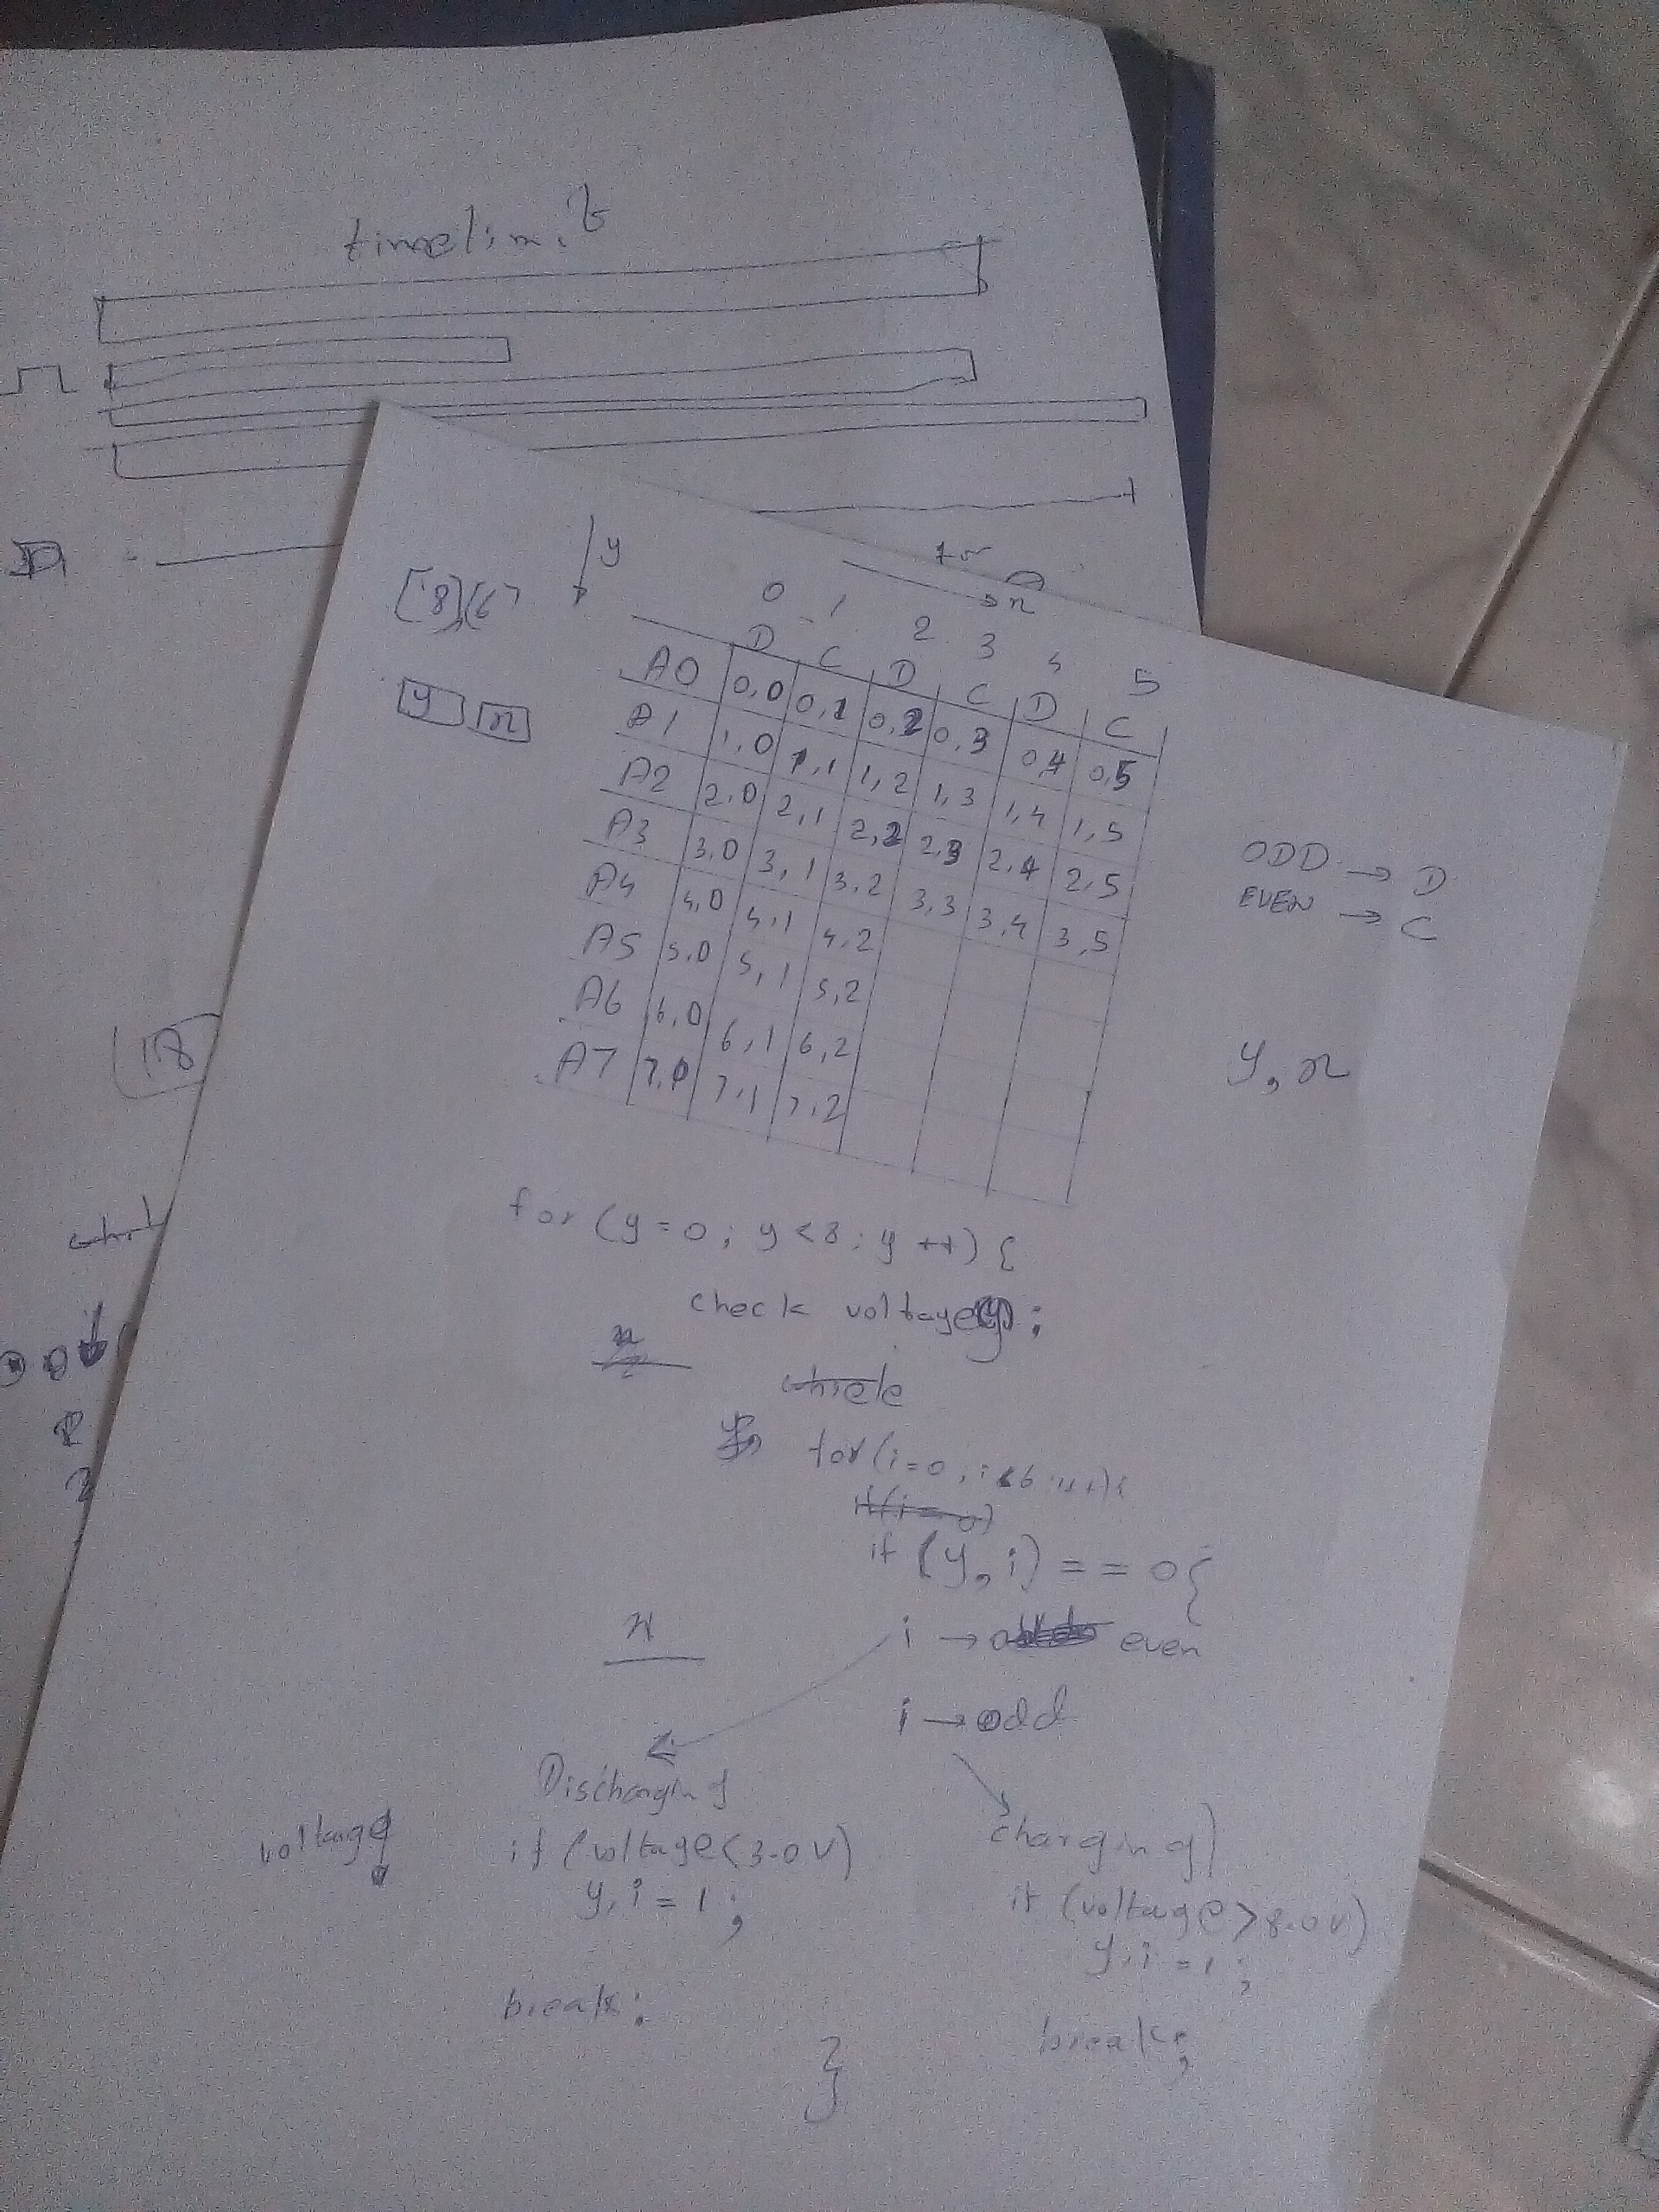 timelimit
for
y
x
[8][6]
0 1 2 3 4 5
D C D C D C
y x
A0 0,0 0,1 0,2 0,3 0,4 0,5
A1 1,0 1,1 1,2 1,3 1,4 1,5
A2 2,0 2,1 2,2 2,3 2,4 2,5
A3 3,0 3,1 3,2 3,3 3,4 3,5
A4 4,0 4,1 4,2
A5 5,0 5,1 5,2
A6 6,0 6,1 6,2
A7 7,0 7,1 7,2
ODD → D
EVEN → C
y, x
(18
for (y=0; y<8; y++) {
check voltage(y);
while
for (i=0; i<6; i++) {
if (i=0)
if (y,i) == 0 {
x
i → even
i → odd
Discharging
charging
voltage
if (voltage < 3.0V)
y,i = 1;
break;
if (voltage > 8.0V)
y,i = 1;
break;
}
}